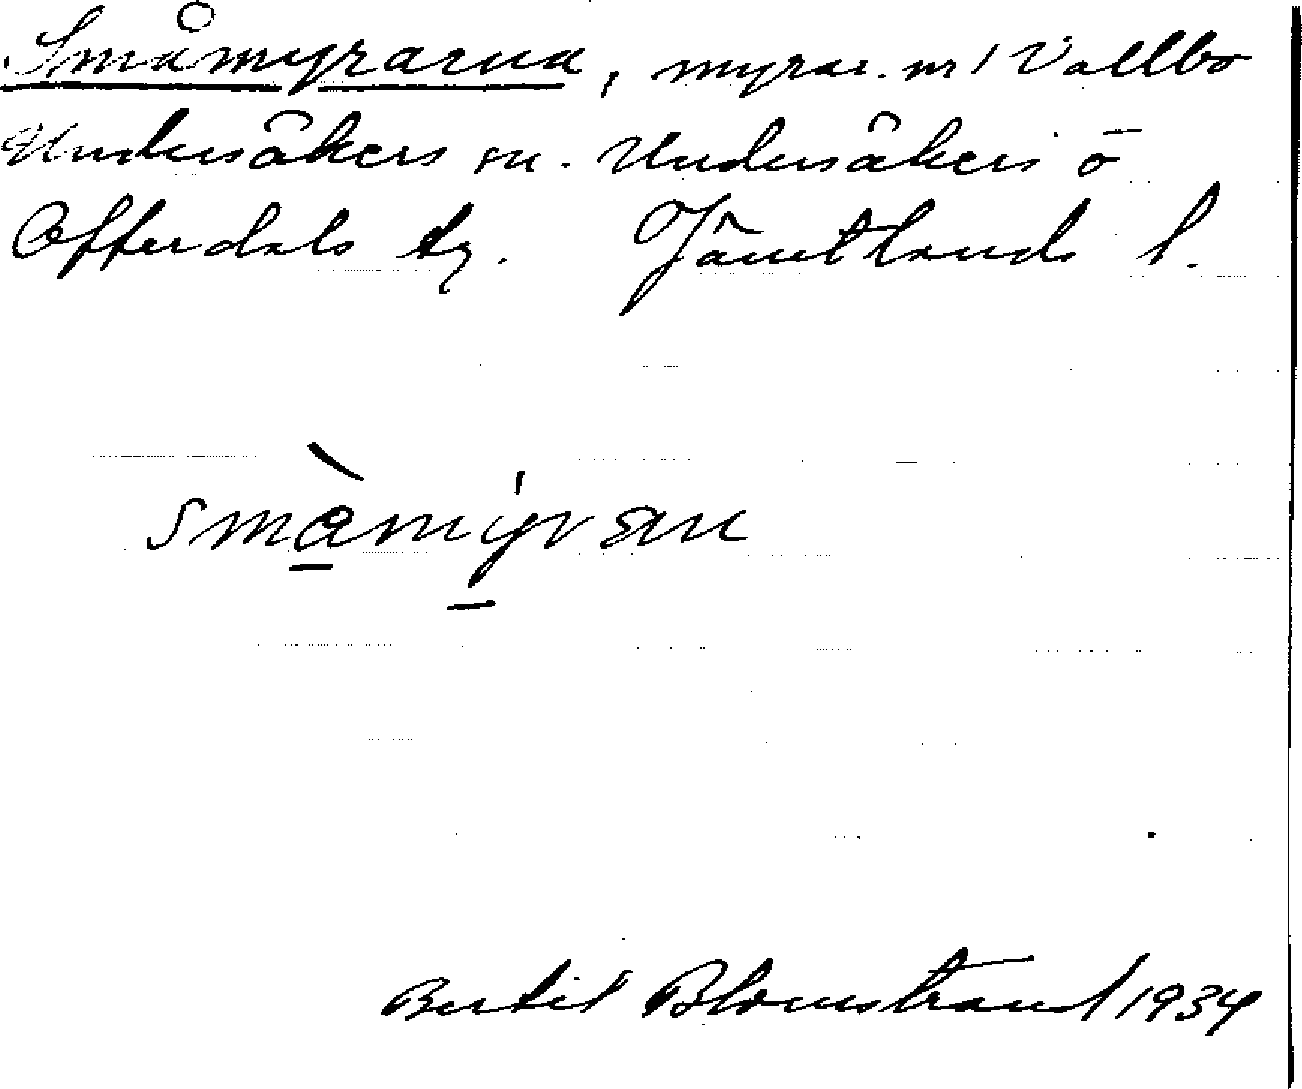 Småmyrarna, myrar. nr 1 Vallbo
Undersåkers sn. Undersåkers o
Offerdals tg. Jämtlands l.
småmyran
Bertil Blomstrand 1934